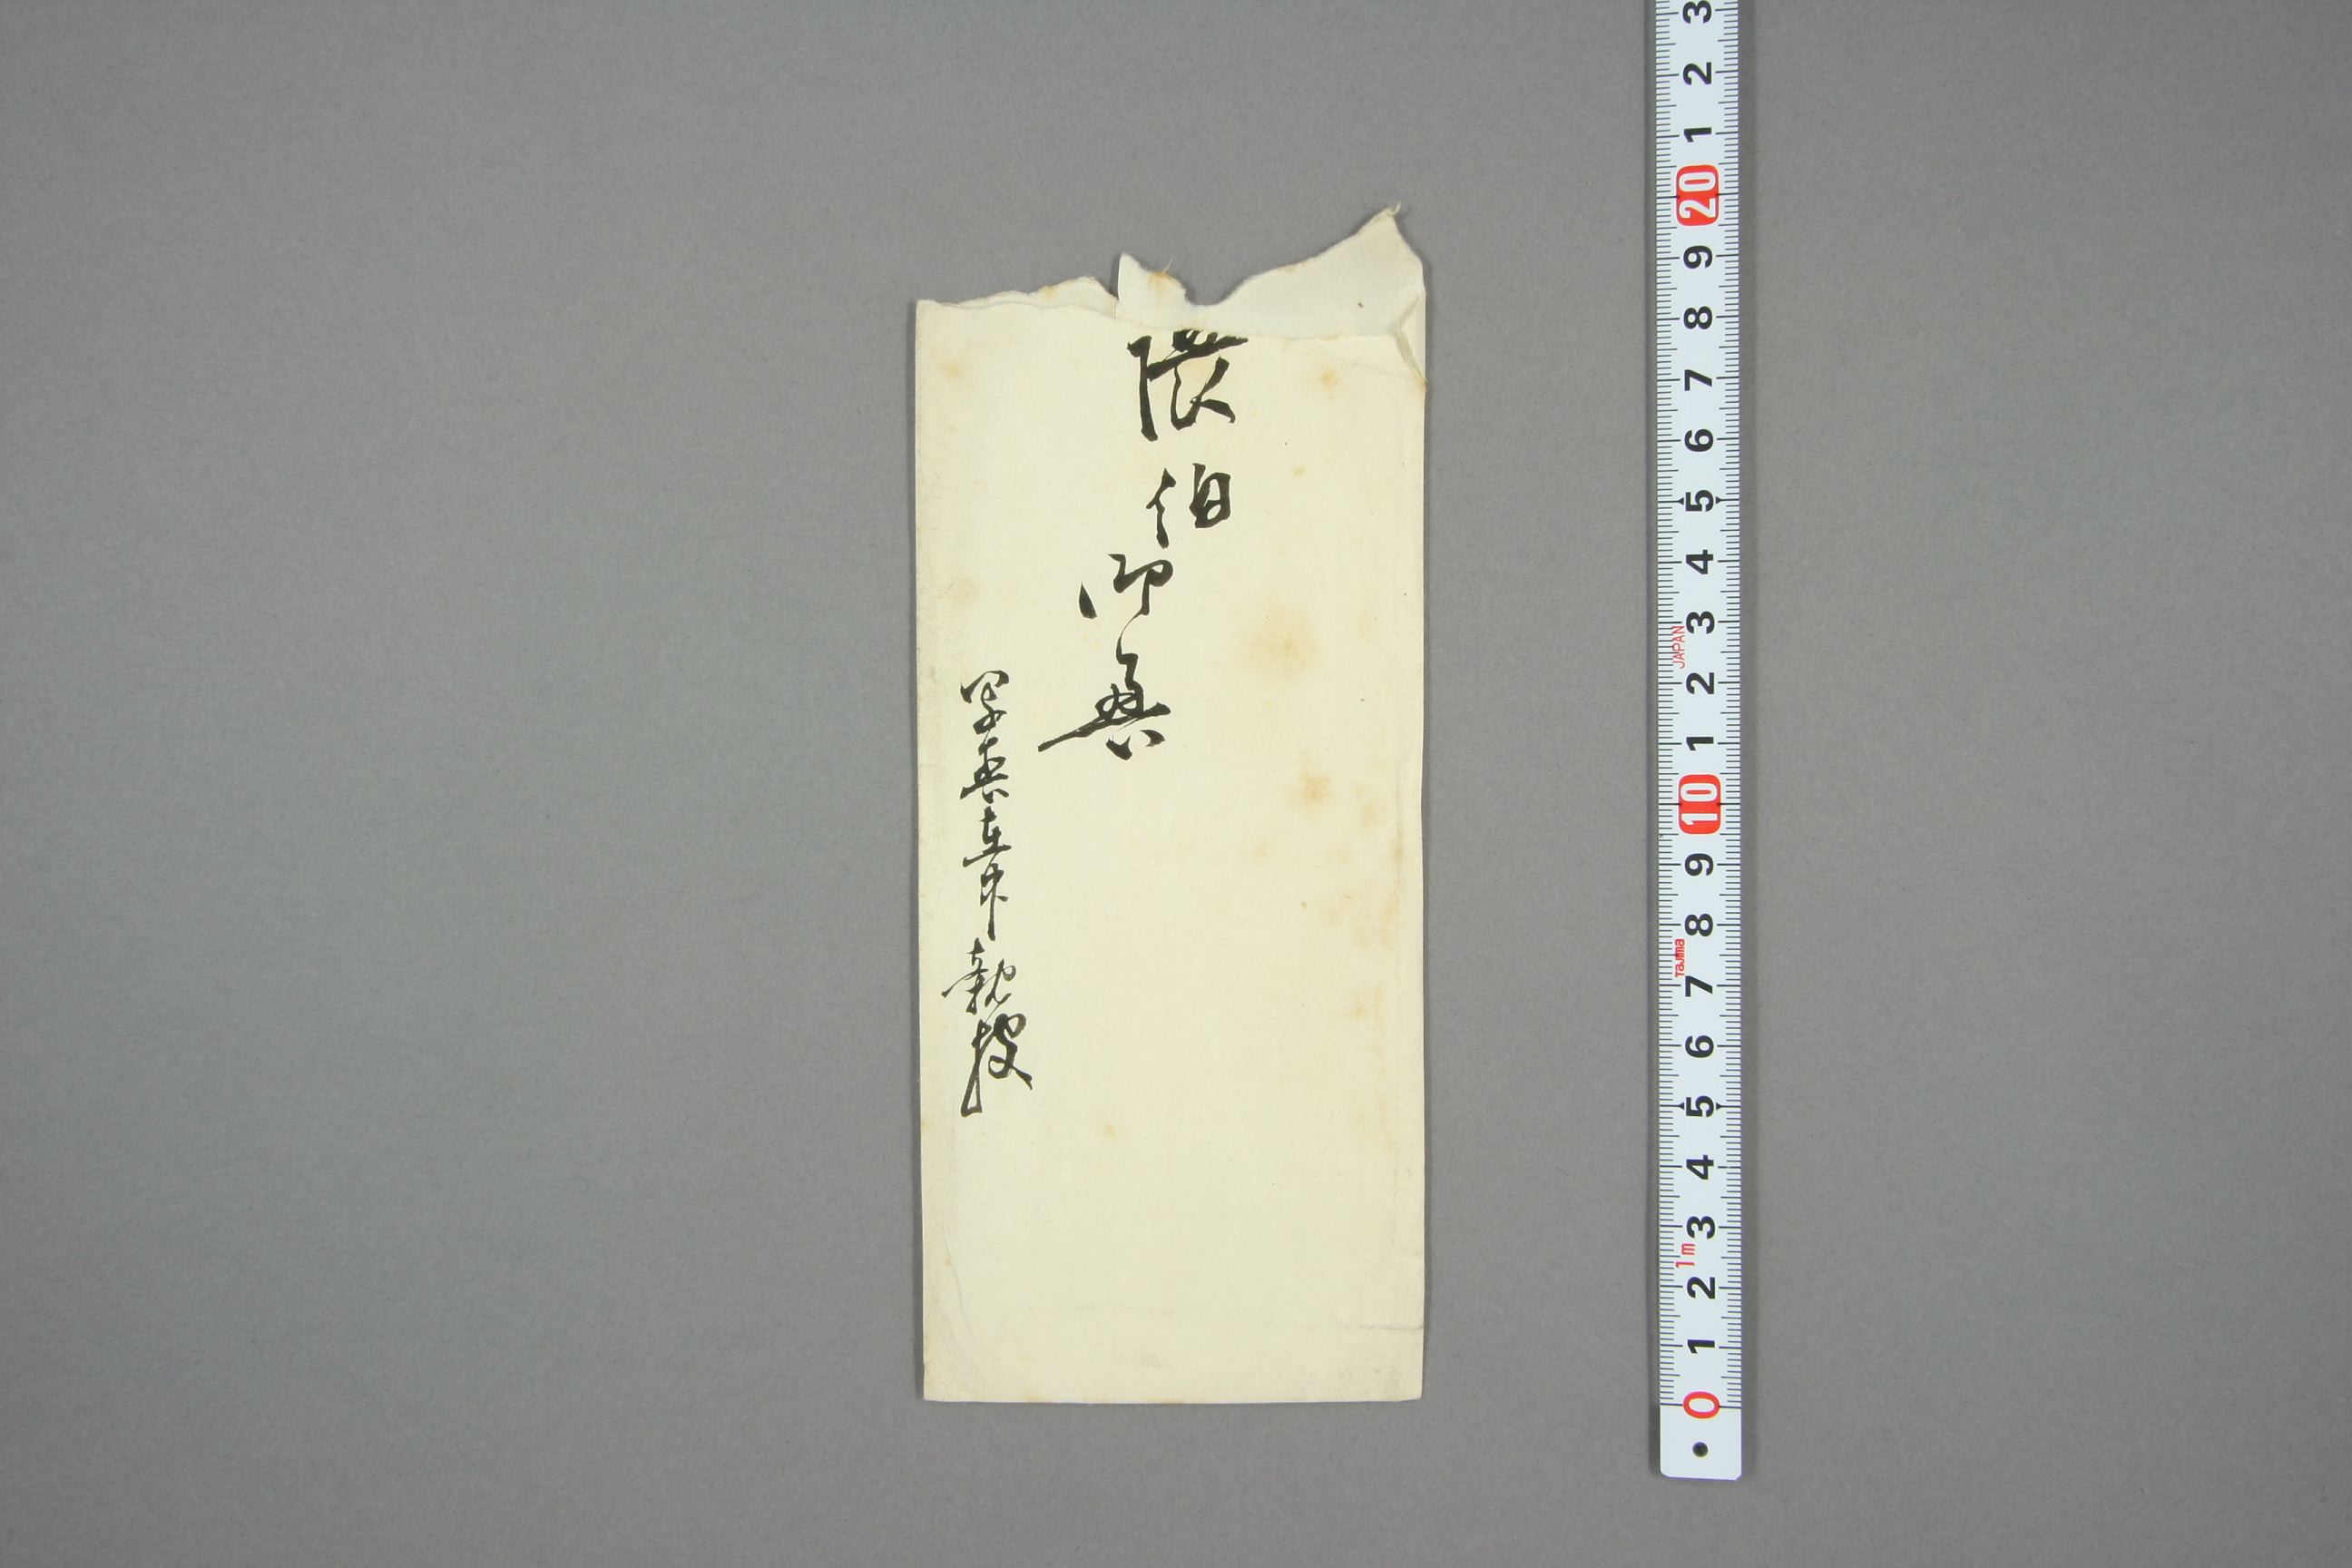 隈伯
御
写真在中
親披
3
2
1
20
9
8
7
6
5
4
3
JAPAN
2
1
10
9
8
Tajima
7
6
5
4
3
1m
2
1
0